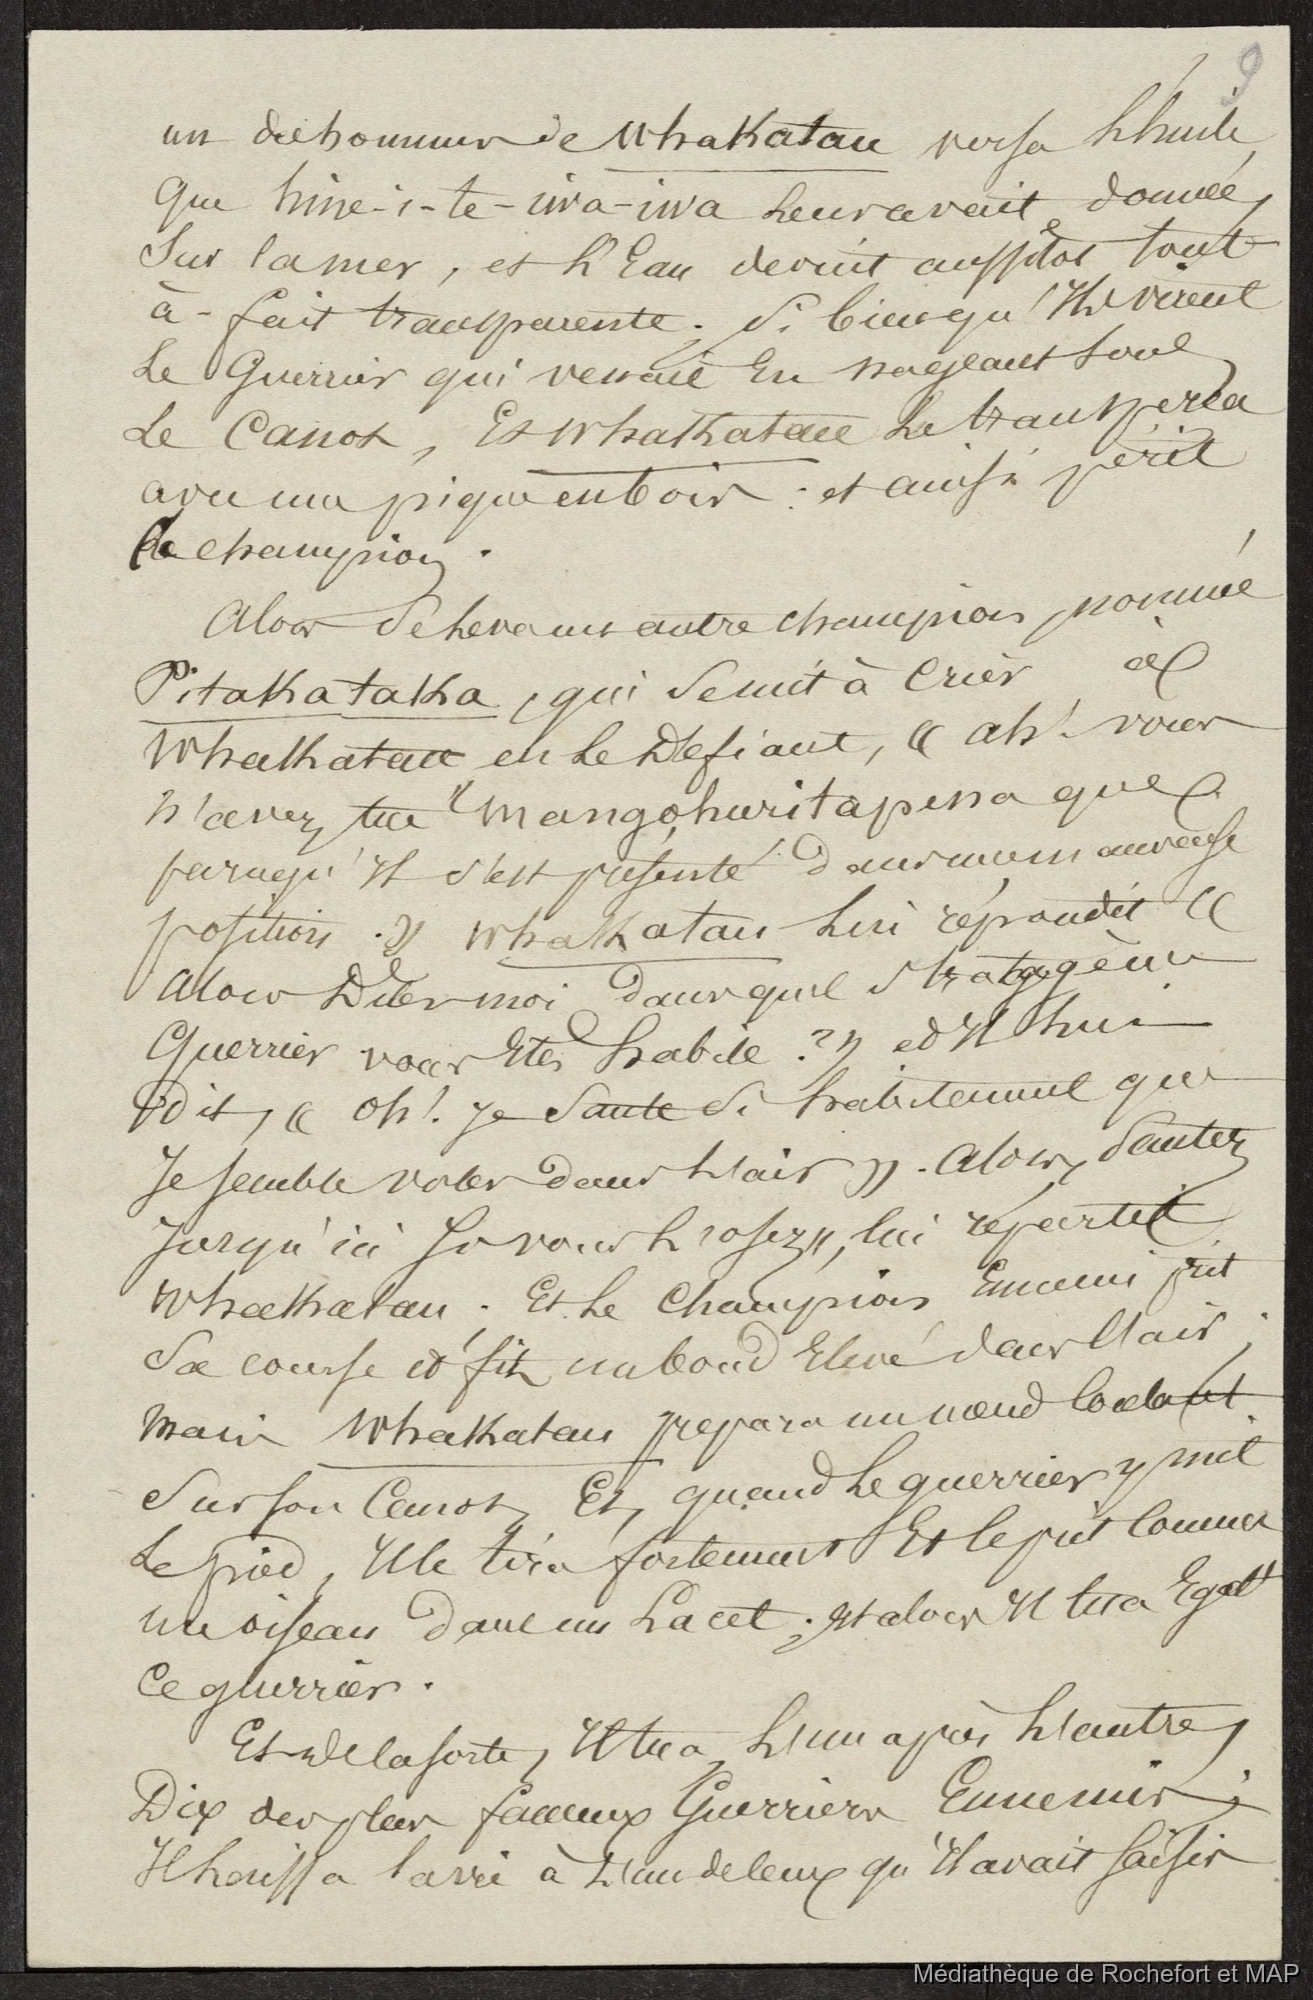 9
un des hommes de Whakatau versa l'huile,
que hine-i-te-iwa-iwa leur avait donnée,
Sur la mer, et l'Eau devint aussitôt tout
à-fait transparente; si bien qu'Ils virent
Le Guerrier qui venait En nageant sous
Le Canot, Et Whakatau Le transperça
avec une pique en bois: et ainsi périt
le champion.
Alors se leva un autre champion, nommé
Pitakataka, qui se mit à Crier à
Whakatau en Le Défiant, « ah! vous
n'avez tué Mangohuritapena que
parcequ'Il s'est présenté dans une mauvaise
position. » Whakatau Lui répondit «
Alors Dites moi dans quel stratagème
Guerrier vous Etes habile? » et Il Lui
dit, « Oh! je saute si habilement que
Je semble voler dans L'air ». Alors, Sautez
Jusqu'ici Si vous L'osez », lui répartit
Whakatau. Et Le Champion Ennemi prit
Sa course et fit un bond Elevé dans l'air;
Mais Whakatau prepara un nœud coulant
Sur son Canot, Et, quand Le guerrier y mit
Le pied, Il le tira fortement Et le prit comme
un oiseau dans un Lacet; et alors Il tua Egalt
Ce guerrier.
Et de la sorte, Il tua, L'un après L'autre,
Dix des plus fameux Guerriers Ennemis;
Il laissa la vie à L'un de ceux qu'Il avait saisis
Médiathèque de Rochefort et MAP